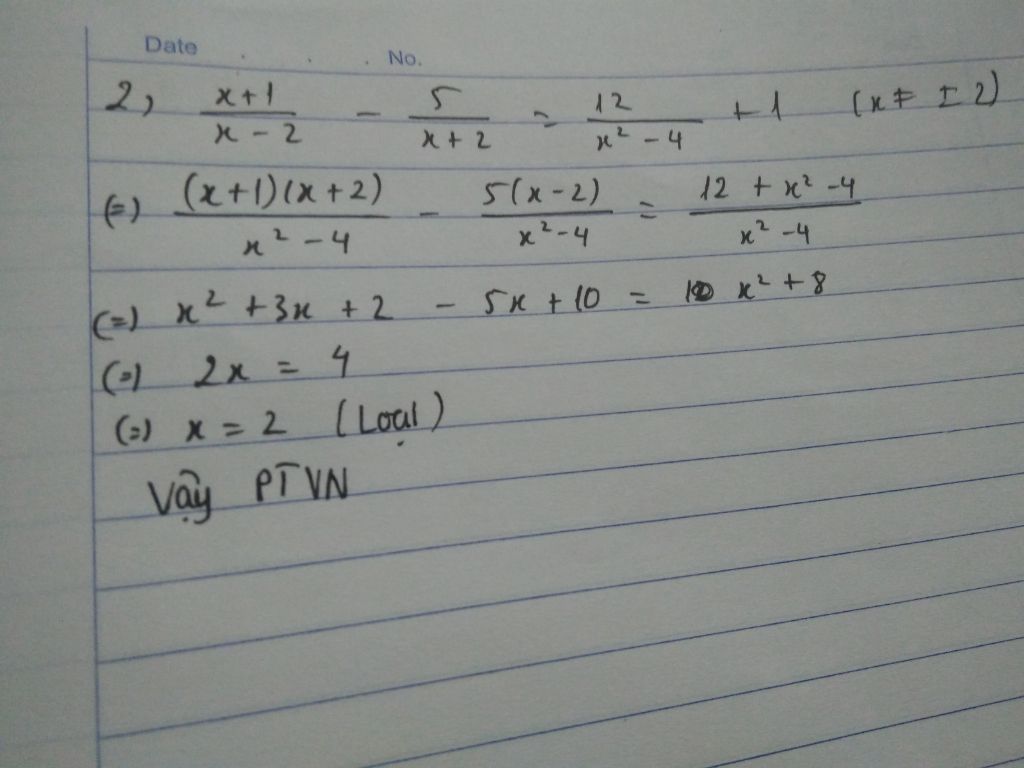 Date . . . No.
2, x+1/x-2 - 5/x+2 = 12/x²-4 + 1 (x ≠ ± 2)
(=) (x+1)(x+2)/x²-4 - 5(x-2)/x²-4 = 12+x²-4/x²-4
(=) x² + 3x + 2 - 5x + 10 = x² + 8
(=) 2x = 4
(=) x = 2 (Loại)
Vậy PTVN